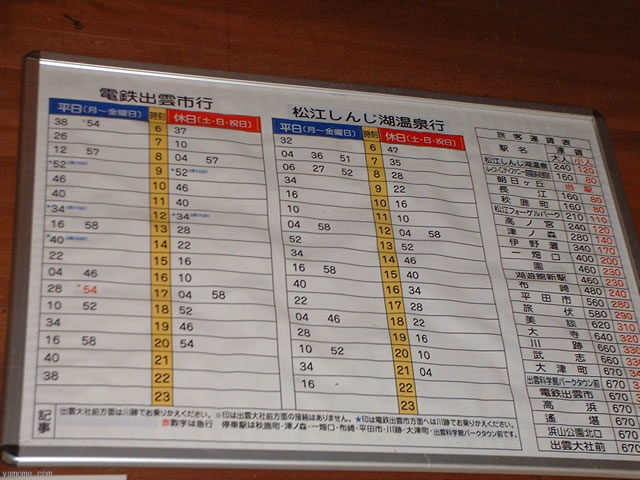 電鉄出雲市行
平日(月～金曜日) 時刻 休日(土・日・祝日)
38 *54 6 37
26 7 10
12 57 8 04 57
★52 9 ★52
46 10 46
40 11 40
★34 12 ★34
16 58 13 28
★40 14 22
22 15 16
04 46 16 10
28 *54 17 04 58
10 52 18 52
34 19 46
16 58 20 54
40 21
38 22
23
松江しんじ湖温泉行
平日(月～金曜日) 時刻 休日(土・日・祝日)
32 6 47
04 36 51 7 35
06 27 52 8 28
28 9 22
22 10 16
16 11 10
04 58 12 04 58
52 13 52
34 14 46
16 58 15 40
40 16 34
22 17 28
04 46 18 22
28 19 16
10 52 20 10
34 21 04
16 22
23
旅客運賃表
駅名 運賃
大人 小人
松江しんじ湖温泉 240 120
160 80
朝日ヶ丘 当駅
長江 160 80
秋鹿町 160 80
松江フォーゲルパーク 210 110
高ノ宮 240 120
津ノ森 280 140
伊野灘 340 170
一畑口 400 200
園 460 230
湖遊館新駅 460 230
布崎 480 240
平田市 560 280
旅伏 580 290
美談 620 310
大寺 640 320
川跡 660 330
武志 660
大津町 670
出雲科学館パークタウン前 670
電鉄出雲市 670
高浜 670
遙堪 670
浜山公園北口 670
出雲大社前 670
記事
出雲大社前方面は川跡でお乗りかえください。※印は出雲大社前方面の接続はありません。★印は電鉄出雲市方面へは川跡でお乗りかえください。
赤数字は急行 停車駅は秋鹿町・津ノ森・一畑口・布崎・平田市・川跡・大津町・出雲科学館パークタウン前です。
yamome.com